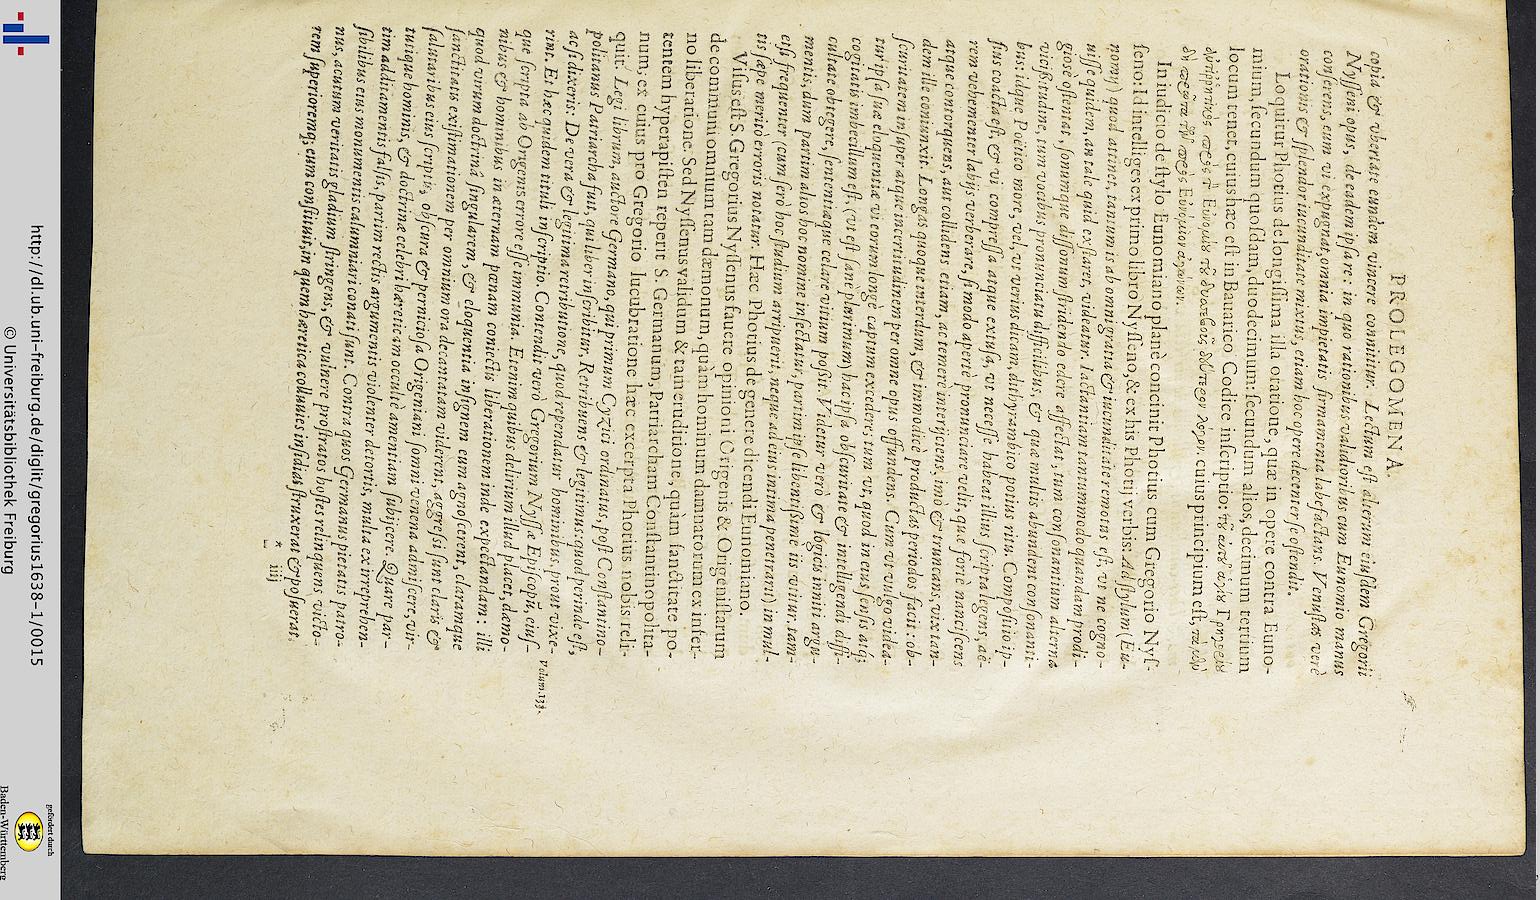 PROLEGOMENA.
copia & vbertate eundem vincere connititur. Lectum est alterum eiusdem Gregorii
Nysseni opus, de eadem ipsa re: in quo rationibus validioribus cum Eunomio manus
conserens, eum vi expugnat, omnia impietatis firmamenta labefactans. Venustas verò
orationis & splendor iucunditate mixtus, etiam hoc opere decenter se ostendit.
Loquitur Photius de longissima illa oratione, quæ in opere contra Euno-
mium, secundum quosdam, duodecimum: secundum alios, decimum tertium
locum tenet, cuius hæc est in Bauarico Codice inscriptio:
cuius principium est,
In iudicio de stylo Eunomiano planè concinit Photius cum Gregorio Nys-
seno: Id intelliges ex primo libro Nysseno, & ex his Photij verbis. Ad stylum (Eu-
nomij) quod attinet, tantum is ab omni gratia & iucunditate remotus est, vt ne cogno-
uisse quidem, an tale quid exstaret, videatur. Iactantiam tantummodo quandam prodi-
giosè ostentat, sonumque dissonum stridendo edere affectat, tum consonantium alterna
vicissitudine, tum vocabus pronunciatu difficilibus, & quæ multis abundent consonanti-
bus: idque Poëtico more, vel, vt verius dicam, dithyrambico potius ritu. Compositio ip-
sius coacta est, & vi compressa atque extusa, vt necesse habeat illius scripta legens, aë-
rem vehementer labijs verberare, si modo apertè pronunciare velit, que fortè nanciscens
atque contorquens, aut collidens etiam, ac temerè interijciens, imò & truncans, vix tan-
dem ille coniunxit. Longas quoque interdum, & immodicè productas periodos facit: ob-
scuritatem insuper atque incertitudinem per omne opus offundens. Cum vt vulgo videa-
tur ipsa suæ eloquentiæ vi eorum longè captum excedere; tum vt, quod in eius sensis atq;
cogitatis imbecillum est, (vt est sanè plurimum) hac ipsa obscuritate & intelligendi diffi-
cultate obtegere, sententiæque celare vitium possit. Videtur verò & logicis inniti argu-
mentis, dum partim alios hoc nomine insectatur, partim ipse libentissimè iis vtitur. tam-
etsi frequenter (cum serò hoc studium arripuerit, neque ad eius intima penetrarit) in mul-
tis sæpe meritò erroris notatur. Hæc Photius de genere dicendi Eunomiano.
Visus est S. Gregorius Nyssenus fauere opinioni Origenis & Origenistarum
de communi omnium tam dæmonum, quàm hominum damnatorum ex infer-
no liberatione. Sed Nyssenus validum & tam eruditione, quàm sanctitate po-
tentem hyperapisten reperit S. Germanum, Patriarcham Constantinopolita-
num; ex cuius pro Gregorio lucubratione hæc excerpta Photius nobis reli-
quit. Legi librum, auctore Germano, qui primum Cyzici ordinatus, post Constantino-
politanus Patriarcha fuit, qui liber inscribitur, Retribuens & legitimus: quod perinde est,
ac si dixeris: De vera & legitima retributione, quod rependatur hominibus, prout vixe-
rint. Et hæc quidem tituli inscriptio. Contendit verò Gregorium Nyssæ Episcopũ, eius-
volum.133.
que scripta ab Origenis errore esse immunia. Etenim quibus delirium illud placet, dæmo-
nibus & hominibus in æternam pœnam coniectis liberationem inde expectandam: illi
quod virum doctrinâ singularem, & eloquentia insignem eum agnoscerent, claramque
sanctitatis existimationem per omnium ora decantatam viderent, aggressi sunt claris &
salutaribus eius scriptis, obscura & perniciosa Origeniani somni venena admiscere, vir-
tutique hominis, & doctrinæ celebri hæreticam occultè amentiam subijcere. Quare par-
tim additamentis falsis, partim rectis argumentis violenter detortis, multa ex irreprehen-
sibilibus eius monumentis calumniari conati sunt. Contra quos Germanus pietatis patro-
nus, acutum veritatis gladium stringens, & vulnere prostratos hostes relinquens victo-
rem superioremq; eum constituit, in quem hæretica colluuies insidias struxerat & posuerat.
* iiij
http://dl.ub.uni-freiburg.de/diglit/gregorius1638-1/0015
© Universitätsbibliothek Freiburg
gefördert durch
Baden-Württemberg